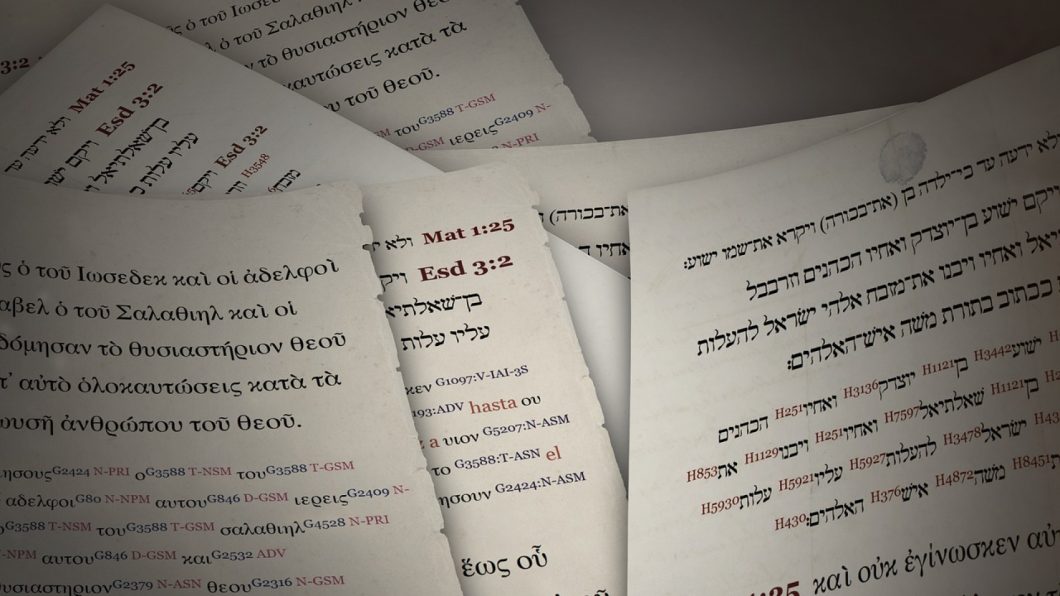 3:2
ὁ τοῦ
ὁ τοῦ Σαλαθιηλ καὶ οἱ
τὸ θυσιαστήριον θεοῦ
κατὰ τὰ
τοῦ θεοῦ.
του G3588 T-GSM
ιερεις G2409 N-
N-PRI
Mat 1:25 ולא ידעה עד
Esd 3:2 ויקם
בן־שאלתיאל
עליו עלות
Esd 3:2
H3548
ὁ τοῦ Ιωσεδεκ καὶ οἱ ἀδελφοὶ
αβελ ὁ τοῦ Σαλαθιηλ καὶ οἱ
δόμησαν τὸ θυσιαστήριον θεοῦ
τ᾽ αὐτὸ ὁλοκαυτώσεις κατὰ τὰ
ωυσῆ ἀνθρώπου τοῦ θεοῦ.
ησους G2424 N-PRI ο G3588 T-NSM του G3588 T-GSM
αδελφοι G80 N-NPM αυτου G846 D-GSM ιερεις G2409 N-
G3588 T-NSM του G3588 T-GSM σαλαθιηλ G4528 N-PRI
-NPM αυτου G846 D-GSM και G2532 ADV
θυσιαστηριον G2379 N-ASN θεου G2316 N-GSM
Mat 1:25 ולא
Esd 3:2 ויק
בן־שאלתיא
עליו עלות
κεν G1097:V-IAI-3S
193:ADV hasta ου
a υιον G5207:N-ASM
το G3588:T-ASN el
ησουν G2424:N-ASM
ἕως οὗ
(את־בכורה)
ואחיו
ולא ידעה עד כי־ילדה בן (את־בכורה) ויקרא את־שמו ישוע׃
ויקם ישוע בן־יוצדק ואחיו הכהנים וזרבבל
יאל ואחיו ויבנו את־מזבח אלהי ישראל להעלות
ככתוב בתורת משה איש־האלהים׃
ישוע H3442 בן H1121 יוצדק H3136 ואחיו H251 הכהנים
בן H1121 שאלתיאל H7597 ואחיו H251 ויבנו H1129 את H853
ישראל H3478 להעלות H5927 עליו H5921 עלות H5930
H8451 משה H4872 איש H376 האלהים׃ H430
:25 καὶ οὐκ ἐγίνωσκεν αὐτ